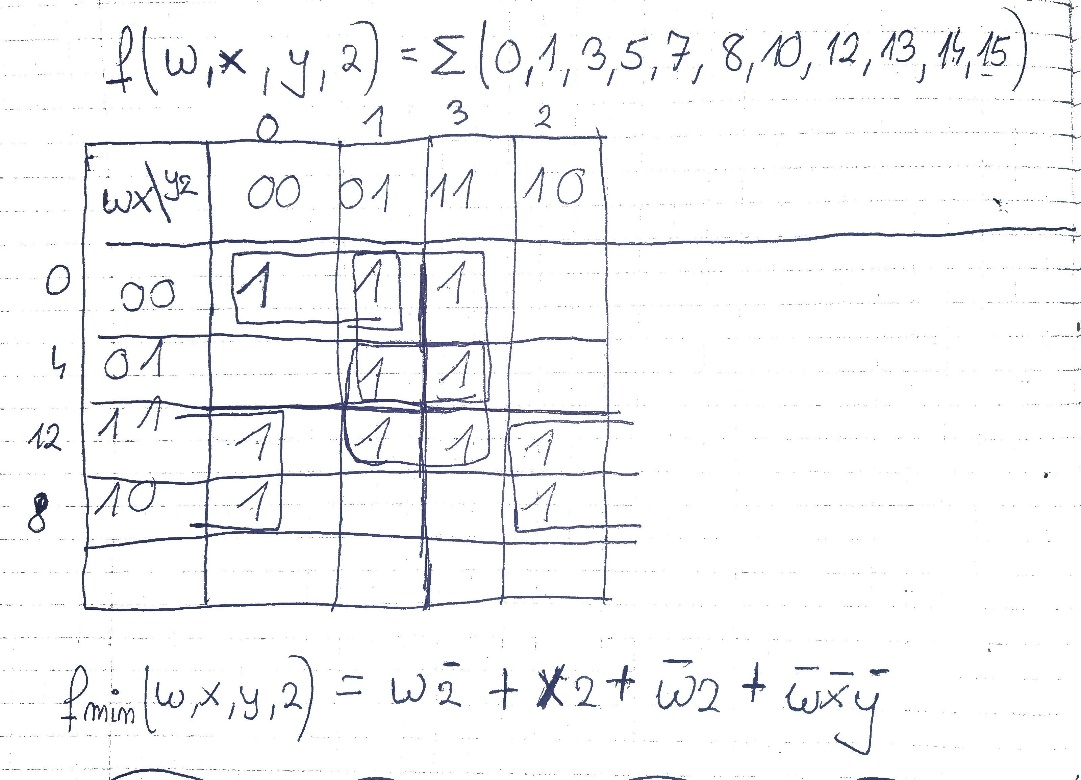 f(w,x,y,2) = Σ(0,1,3,5,7,8,10,12,13,14,15)
0 1 3 2
wx\y2 00 01 11 10
0 00 1 1 1
4 01 1 1
12 11 1 1 1 1
8 10 1 1
fmin(w,x,y,2) = w2̄ + x2 + w̄2 + w̄x̄ȳ